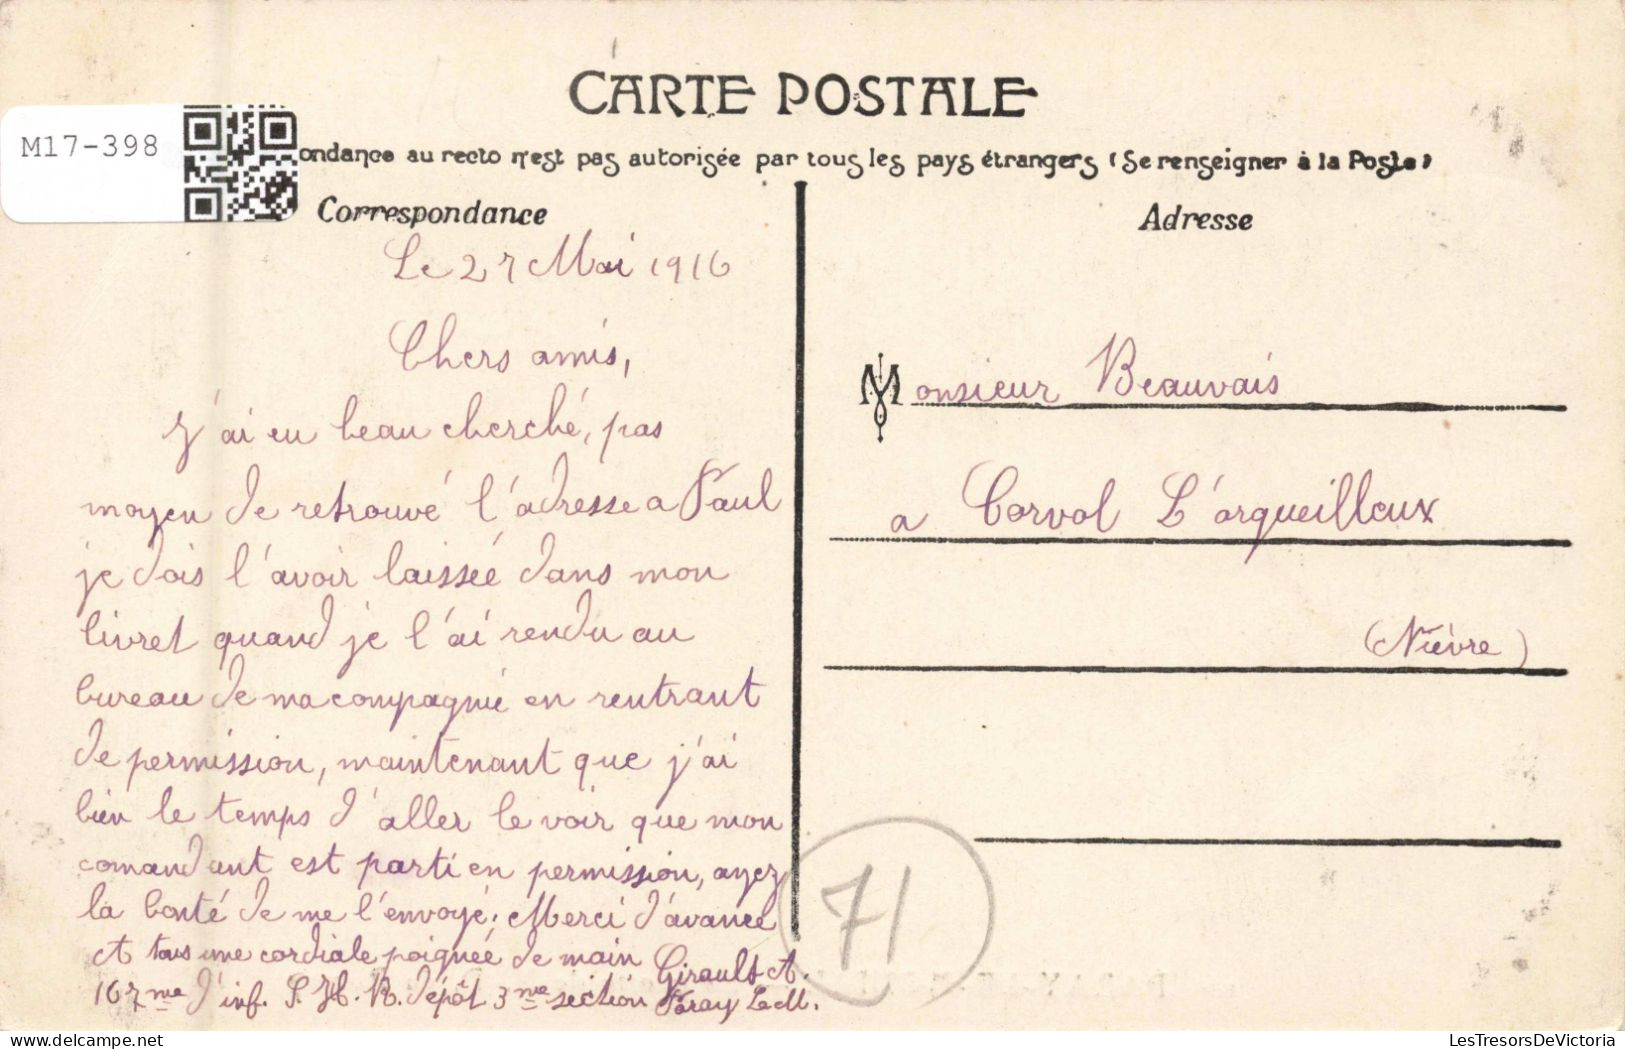 CARTE POSTALE
M17-398
ondance au recto n'est pas autorisée par tous les pays étrangers (Se renseigner à la Poste)
Correspondance
Le 27 Mai 1916
Chers amis,
J'ai eu beau cherché, pas
moyen de retrouvé l'adresse a Paul
je dois l'avoir laissée dans mon
livret quand je l'ai rendu au
bureau de ma compagnie en rentrant
de permission, maintenant que j'ai
bien le temps d'aller le voir que mon
comandant est parti en permission, ayez
la bonté de me l'envoyé; Merci d'avance
et tous une cordiale poignée de main Girault A.
167me d'inf. S. H. R. dépôt 3me section Paray Le M.
Adresse
Monsieur Beauvais
a Corvol L'orgueilleux
(Nièvre)
71
LesTresorsDeVictoria